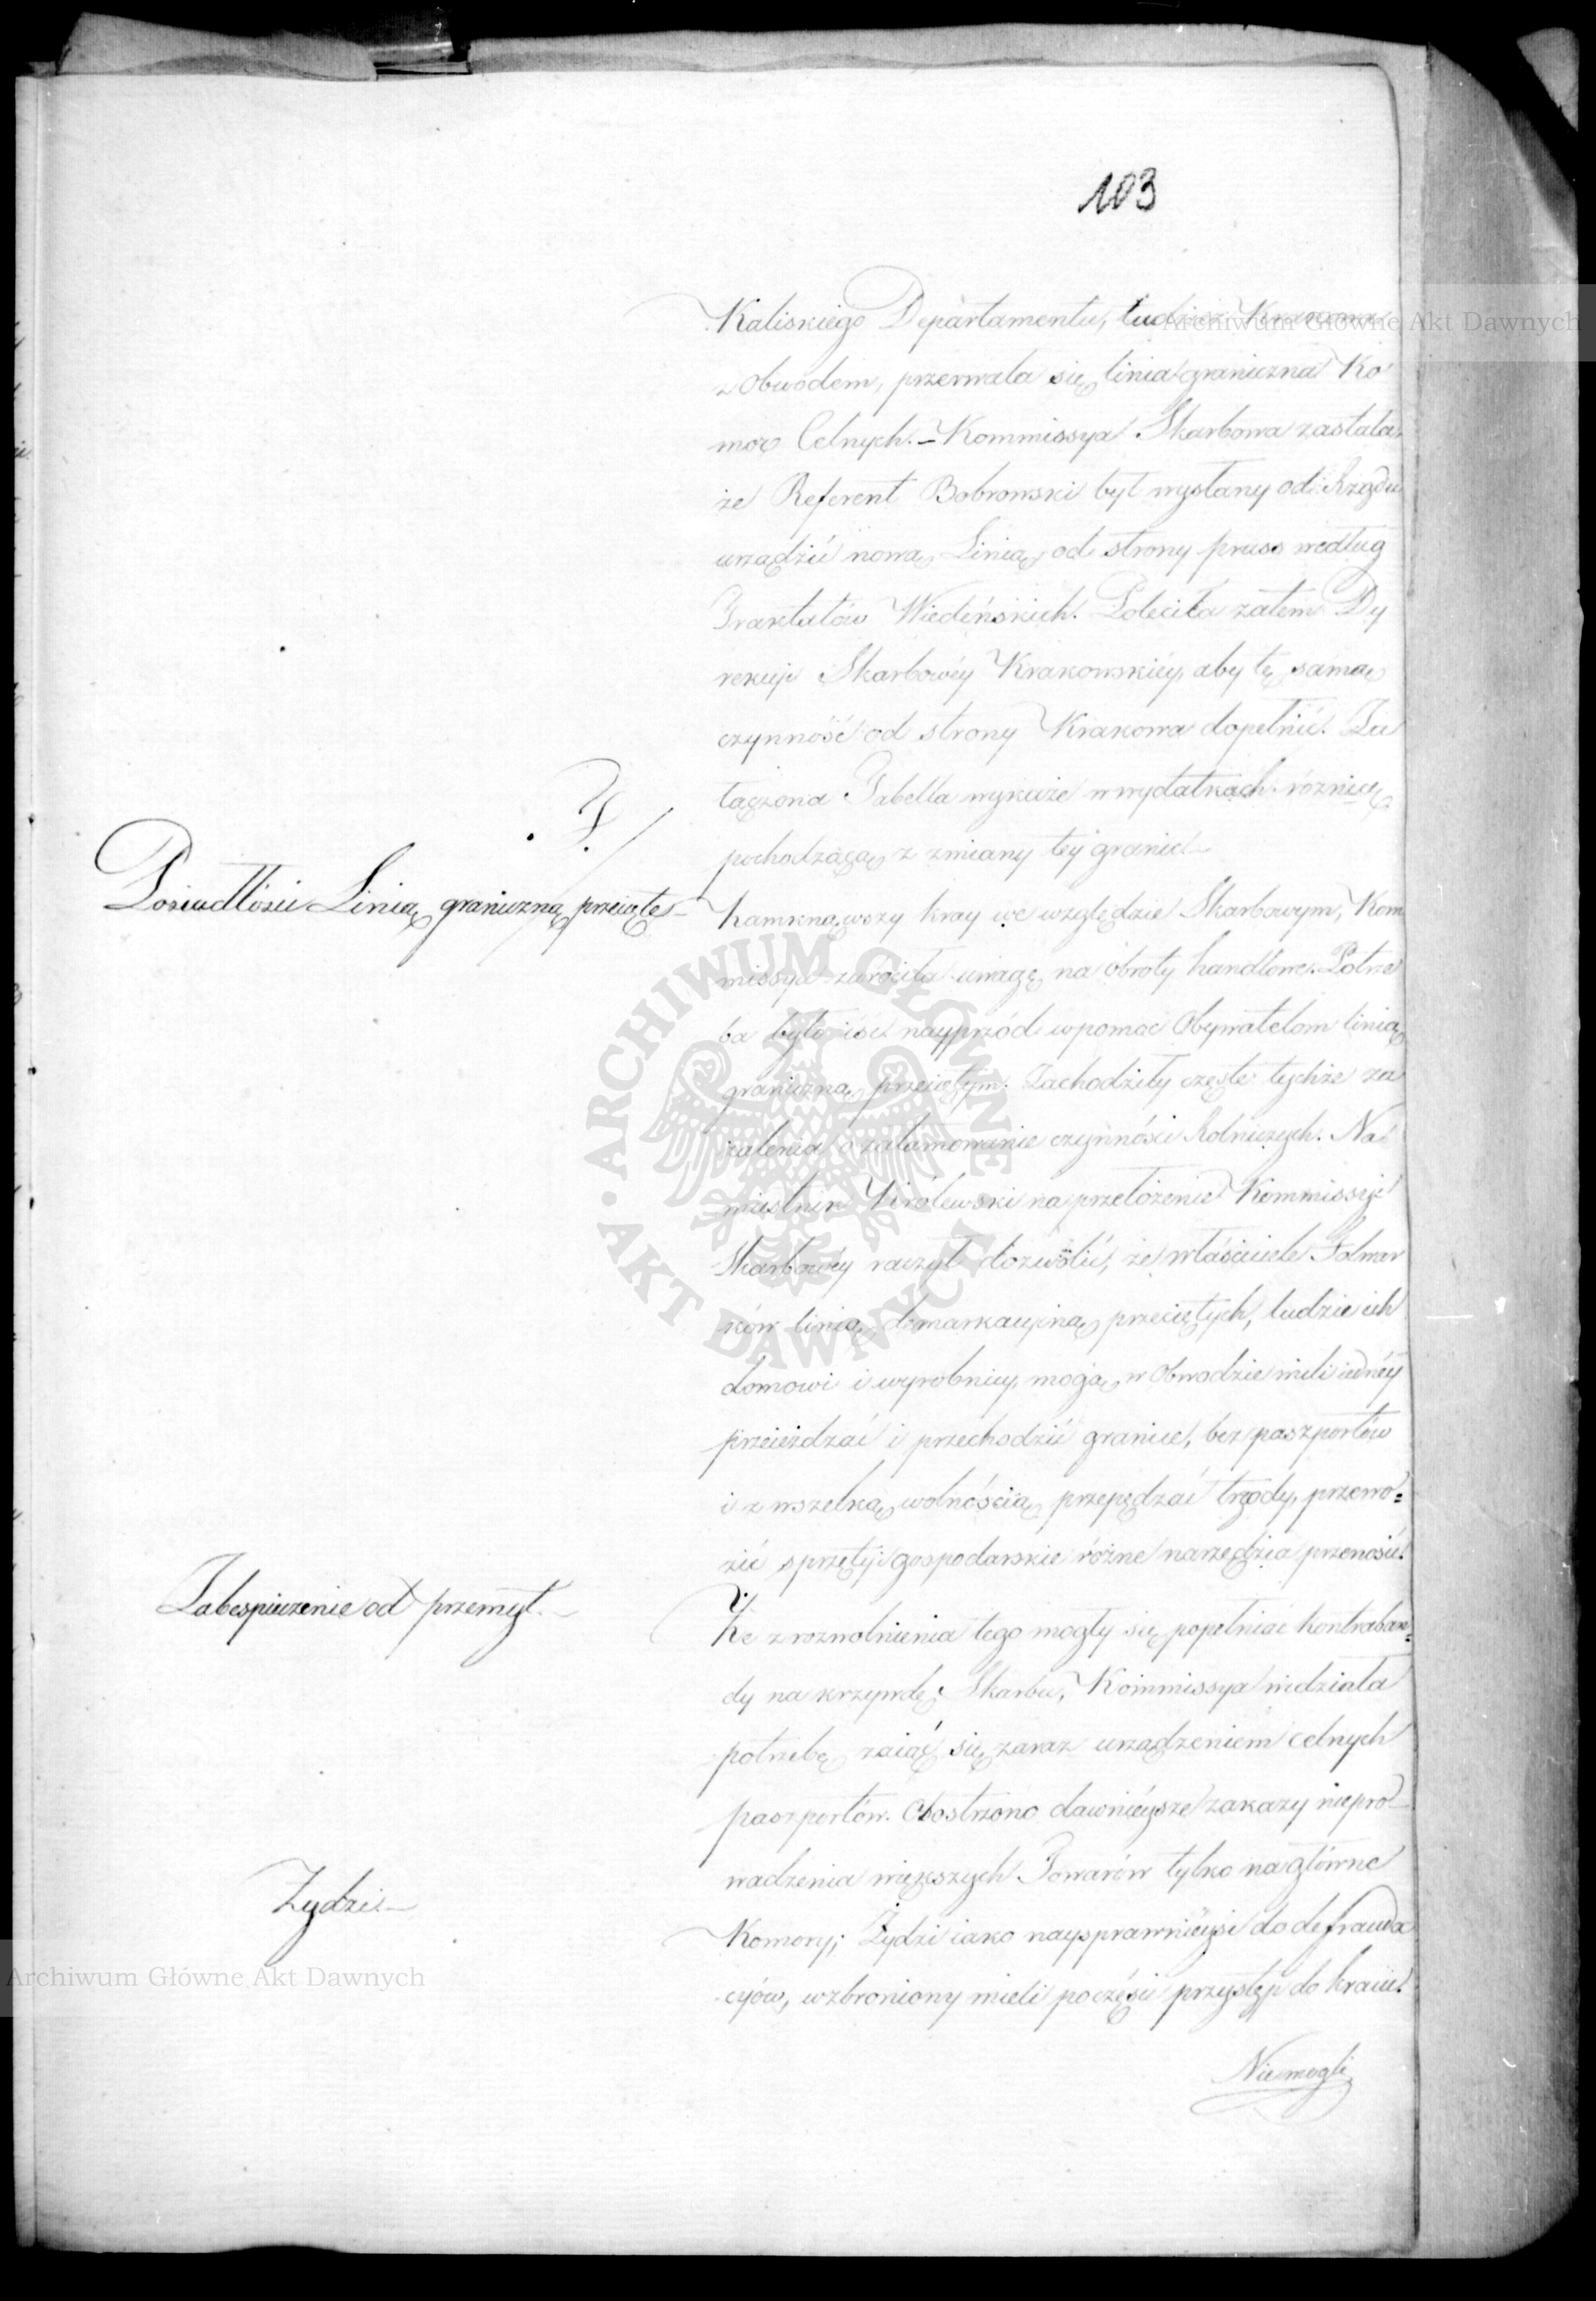 103
Kaliskiego Departamentu, tudzież Krakowa
z Obwodem, przerwała się linia graniczna Ko
mor Celnych. – Kommissya Skarbowa zastała,
że Referent Bobrowski był wysłany od Rządu
urządzić nową Linią od strony pruss według
Traktatów Wiedeńskich. Poleciła zatem Dy
rekcyi Skarbowéy Krakowskiéy, aby tę samą
czynność od strony Krakowa dopełnić. Za
łączona Tabella wykaże w wydatkach różnicę
pochodzącą z zmiany téy granic –
Posiadłości Linią graniczną przecięte –
Zamknąwszy kray we względzie Skarbowym, Kom
missya zwróciła uwagę na obroty handlowe. Potrze
ba było iść nayprzód w pomoc Obywatelom linią
graniczną przeciętym. Zachodziły częste tychże za
żalenia o zatamowanie czynności Rolniczych. Na
miestnik Królewski na przełożenie Kommissyi
Skarbowéy raczył dozwolić, że właściciele Folwar
ków linią demarkacyiną przeciętych, ludzie ich
domowi i wyrobnicy, mogą w Obwodzie mili iednéy
przeieżdzać i przechodzić granice, bez paszportów
i z wszelką wolnością przepędzać trzody, przewo=
zić sprzęty i gospodarskie różne narzędzia przenosić.
Zabespieczenie od przemyt. –
Że z rozwolnienia tego mogły się popełniać kontraban=
dy na krzywdę Skarbu, Kommissya widziała
potrzebę zaiąć się zaraz urządzeniem celnych
paszportów. Obostrzono dawnieysze zakazy niepro
wadzenia większych Towarów tylko na główne
Żydzi. –
Komory; Żydzi iako naysprawnieysi do defrauda
cyów, wzbroniony mieli po części przystęp do kraiu.
Niemogli
Archiwum Główne Akt Dawnych
ARCHIWUM GŁÓWNE AKT DAWNYCH
Archiwum Główne Akt Dawnych